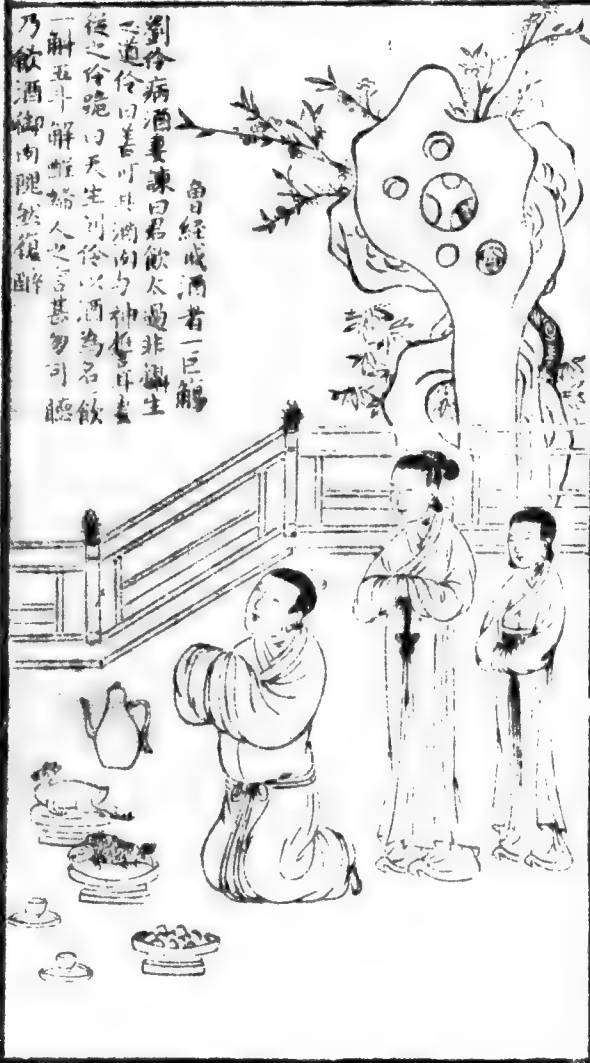 曾經戒酒者一巨觴
劉伶病酒妻諫曰君飲太過非攝生
之道伶曰善可具酒肉与神誓耳妻
從之伶跪曰天生劉伶以酒為名一飲
一斛五斗解酲婦人之言甚勿可聽
乃飲酒御肉隗然復醉